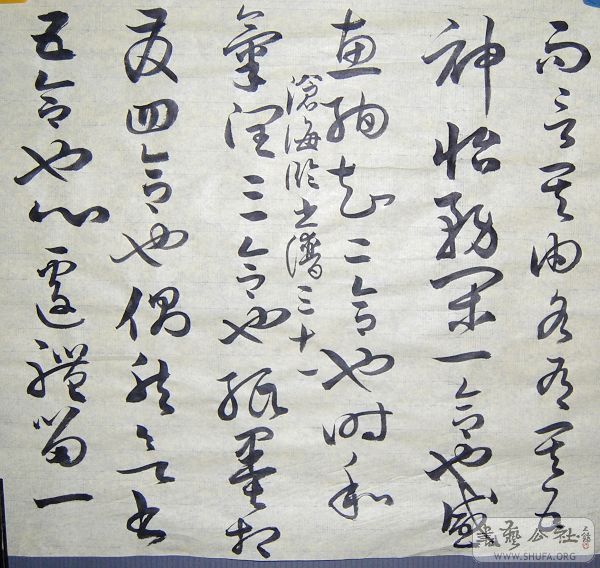 言其由各有其五
神怡務閑一合也感
惠徇知二合也時和
滄海臨書譜三十一
氣潤三合也紙墨相
發四合也偶然欲書
五合也心遽體留一
書藝公社
WWW.SHUFA.ORG